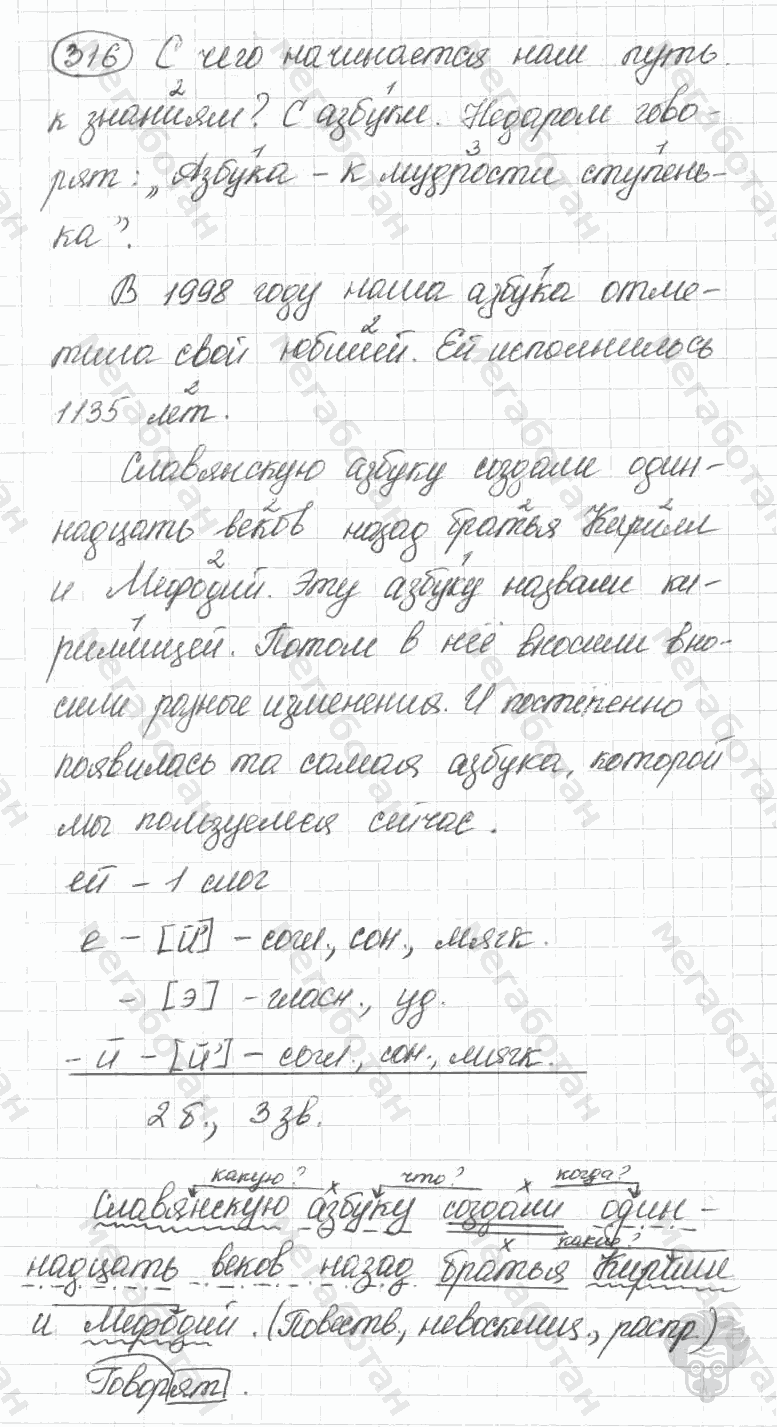 316 С чего начинается наш путь
к знаниям? С азбуки. Недаром гово-
рят: „Азбука – к мудрости ступень-
ка”.
В 1998 году наша азбука отме-
тила свой юбилей. Ей исполнилось
1135 лет.
Славянскую азбуку создали один-
надцать веков назад братья Кирилл
и Мефодий. Эту азбуку назвали ки-
риллицей. Потом в неё вносили вно-
сили разные изменения. И постепенно
появилась та самая азбука, которой
мы пользуемся сейчас.
ей – 1 слог
е – [й'] – согл., сон., мягк.
– [э] – гласн., уд.
– й – [й'] – согл., сон., мягк.
2 б., 3 зв.
какую? х что? х когда?
Славянскую азбуку создали один-
х какие?
надцать веков назад братья Кирилл
и Мефодий. (Повеств., невосклиц., распр.)
Говорят.
мегаботан